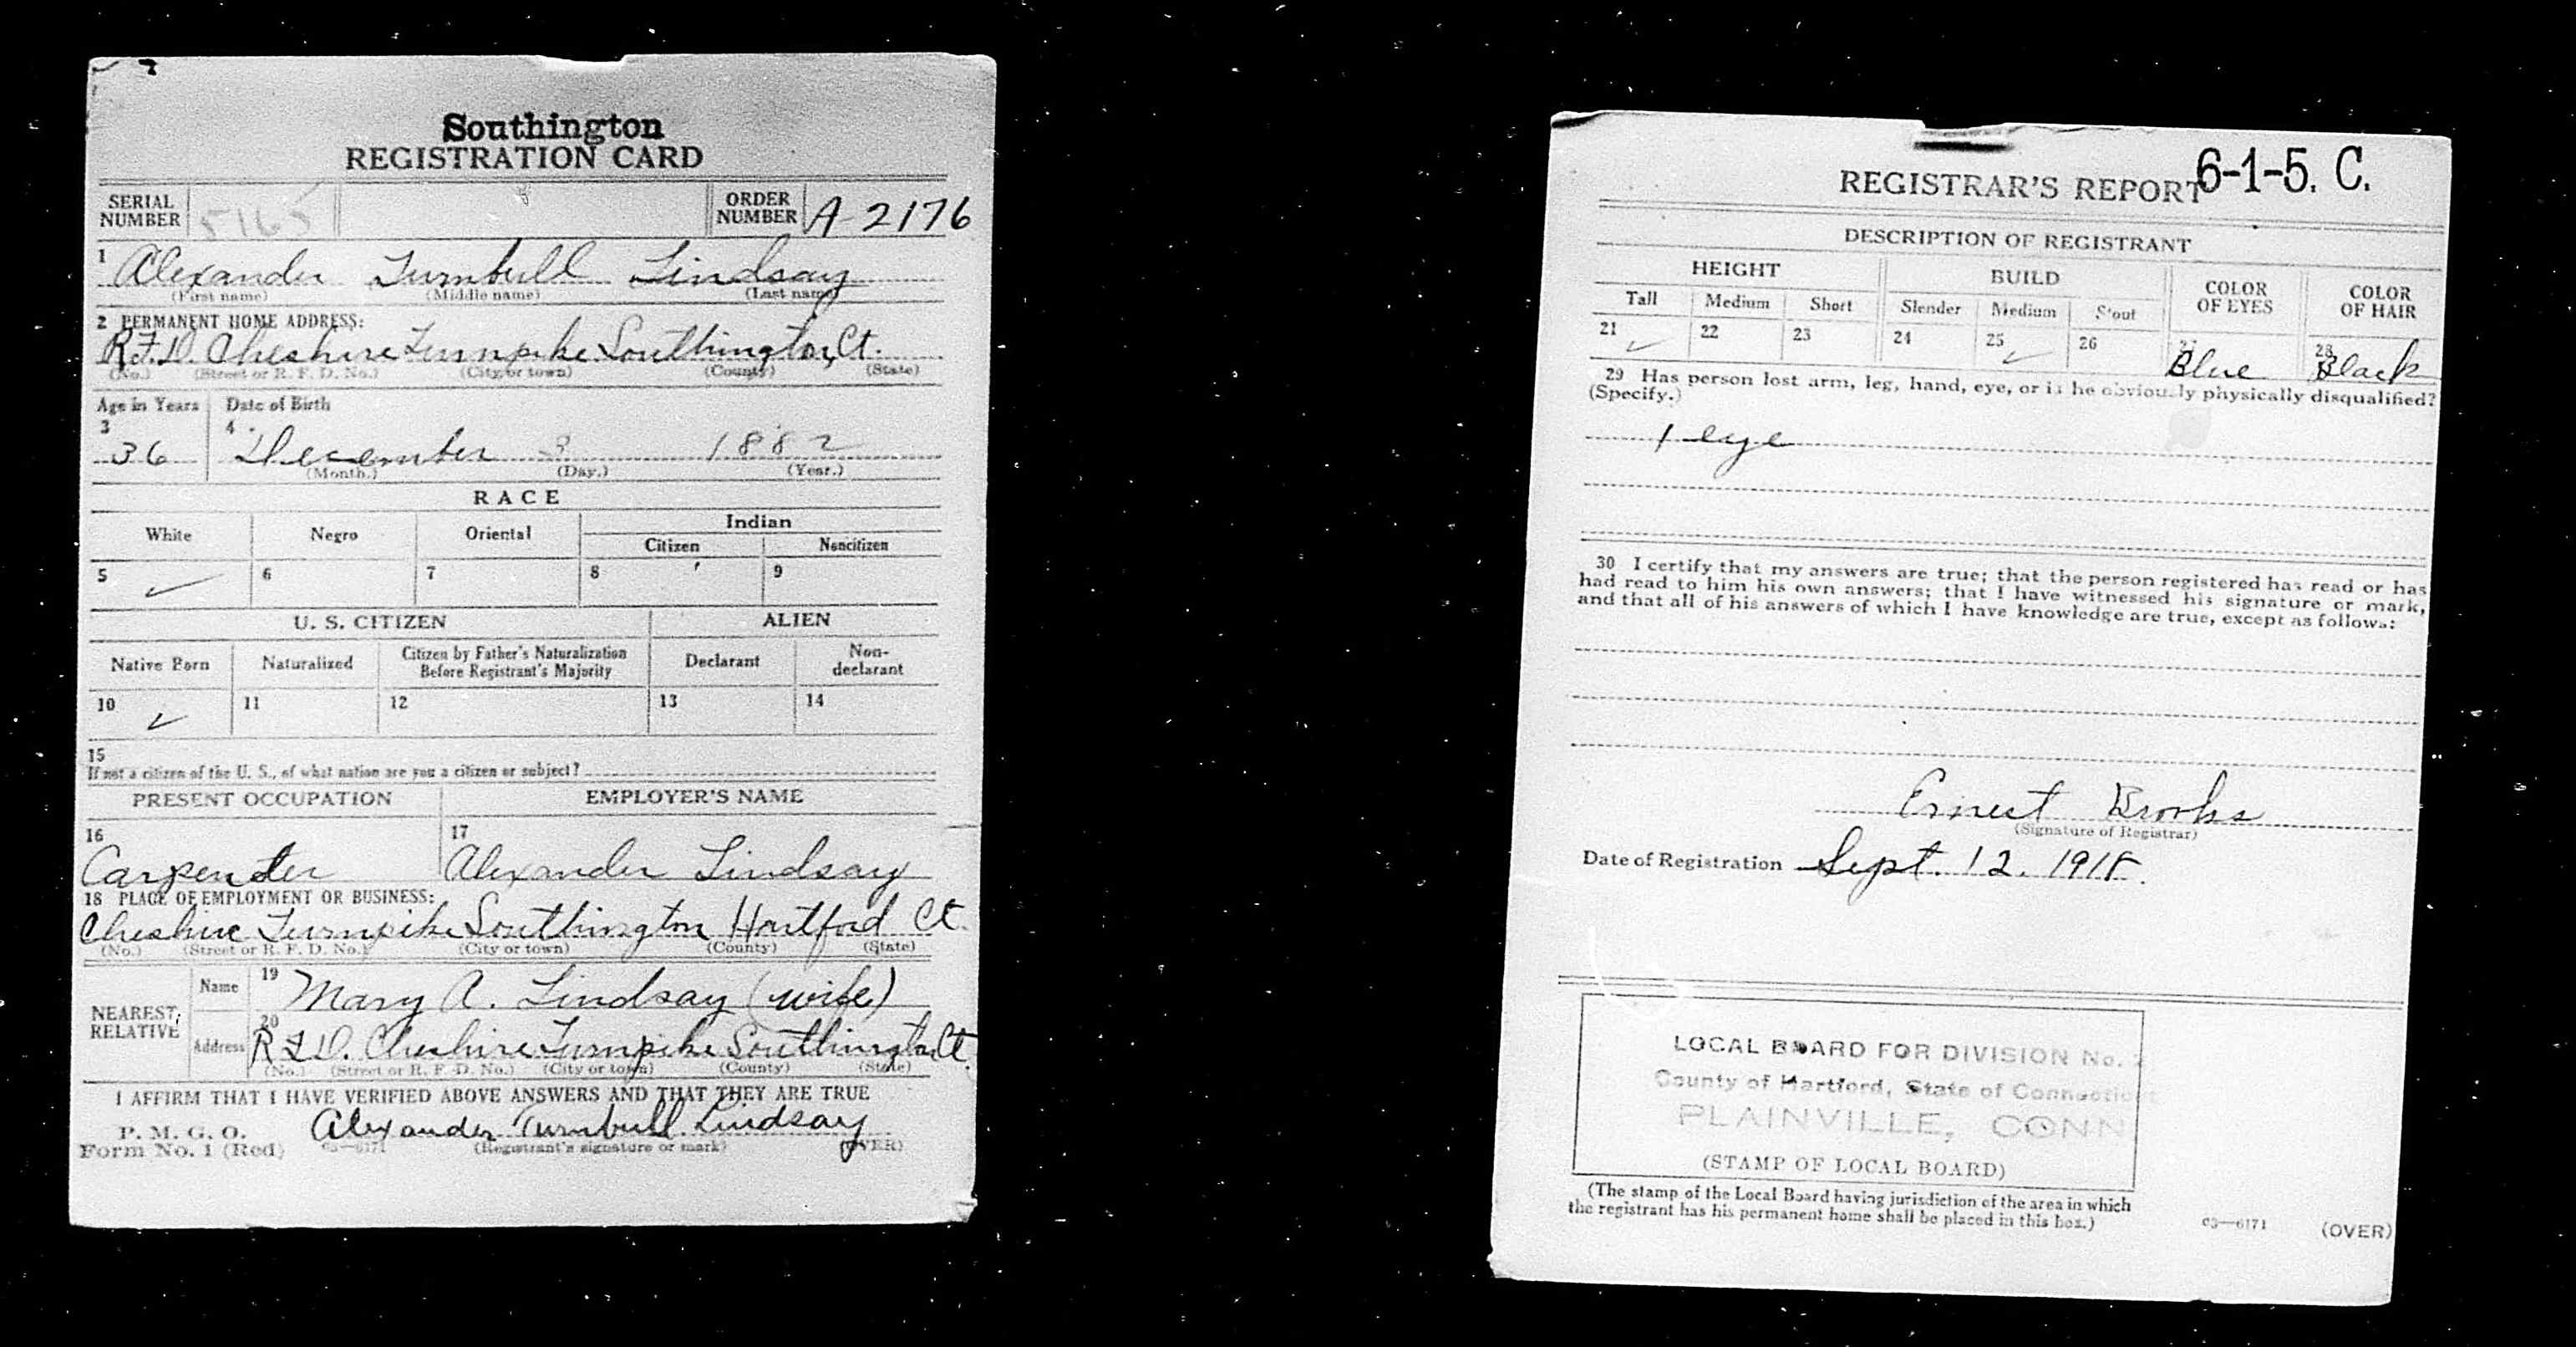 Southington
REGISTRATION CARD
SERIAL NUMBER 5165 ORDER NUMBER A 2176
1 Alexander Turnbull Lindsay
(First name) (Middle name) (Last name)
2 PERMANENT HOME ADDRESS:
R.F.D. Cheshire Turnpike Southington, Ct.
(No.) (Street or R. F. D. No.) (City or town) (County) (State)
Age in Years Date of Birth
3 4
36 December 3 1882
(Month.) (Day.) (Year.)
RACE
White Negro Oriental Indian
Citizen Noncitizen
5 ✓ 6 7 8 9
U. S. CITIZEN ALIEN
Native Born Naturalized Citizen by Father's Naturalization Before Registrant's Majority Declarant Non-declarant
10 ✓ 11 12 13 14
15
If not a citizen of the U. S., of what nation are you a citizen or subject?
PRESENT OCCUPATION EMPLOYER'S NAME
16 17
Carpenter Alexander Lindsay
18 PLACE OF EMPLOYMENT OR BUSINESS:
Cheshire Turnpike Southington Hartford Ct.
(No.) (Street or R. F. D. No.) (City or town) (County) (State)
NEAREST RELATIVE
Name 19 Mary A. Lindsay (wife)
Address 20 R.F.D. Cheshire Turnpike Southington Ct.
(No.) (Street or R. F. D. No.) (City or town) (County) (State)
I AFFIRM THAT I HAVE VERIFIED ABOVE ANSWERS AND THAT THEY ARE TRUE
P. M. G. O.
Form No. 1 (Red) 03—6171 Alexander Turnbull Lindsay
(Registrant's signature or mark) (OVER)
REGISTRAR'S REPORT 6-1-5. C.
DESCRIPTION OF REGISTRANT
HEIGHT BUILD COLOR OF EYES COLOR OF HAIR
Tall Medium Short Slender Medium Stout
21 ✓ 22 23 24 25 ✓ 26 27 Blue 28 Black
29 Has person lost arm, leg, hand, eye, or is he obviously physically disqualified?
(Specify.)
1 eye
30 I certify that my answers are true; that the person registered has read or has
had read to him his own answers; that I have witnessed his signature or mark,
and that all of his answers of which I have knowledge are true, except as follows:
Ernest Brooks
(Signature of Registrar)
Date of Registration Sept. 12. 1918.
LOCAL BOARD FOR DIVISION No. 2
County of Hartford, State of Connecticut
PLAINVILLE, CONN
(STAMP OF LOCAL BOARD)
(The stamp of the Local Board having jurisdiction of the area in which
the registrant has his permanent home shall be placed in this box.)
03—6171 (OVER)